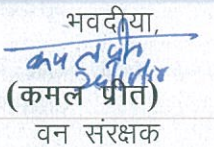 भवदीया,
(कमल प्रीत)
वन संरक्षक